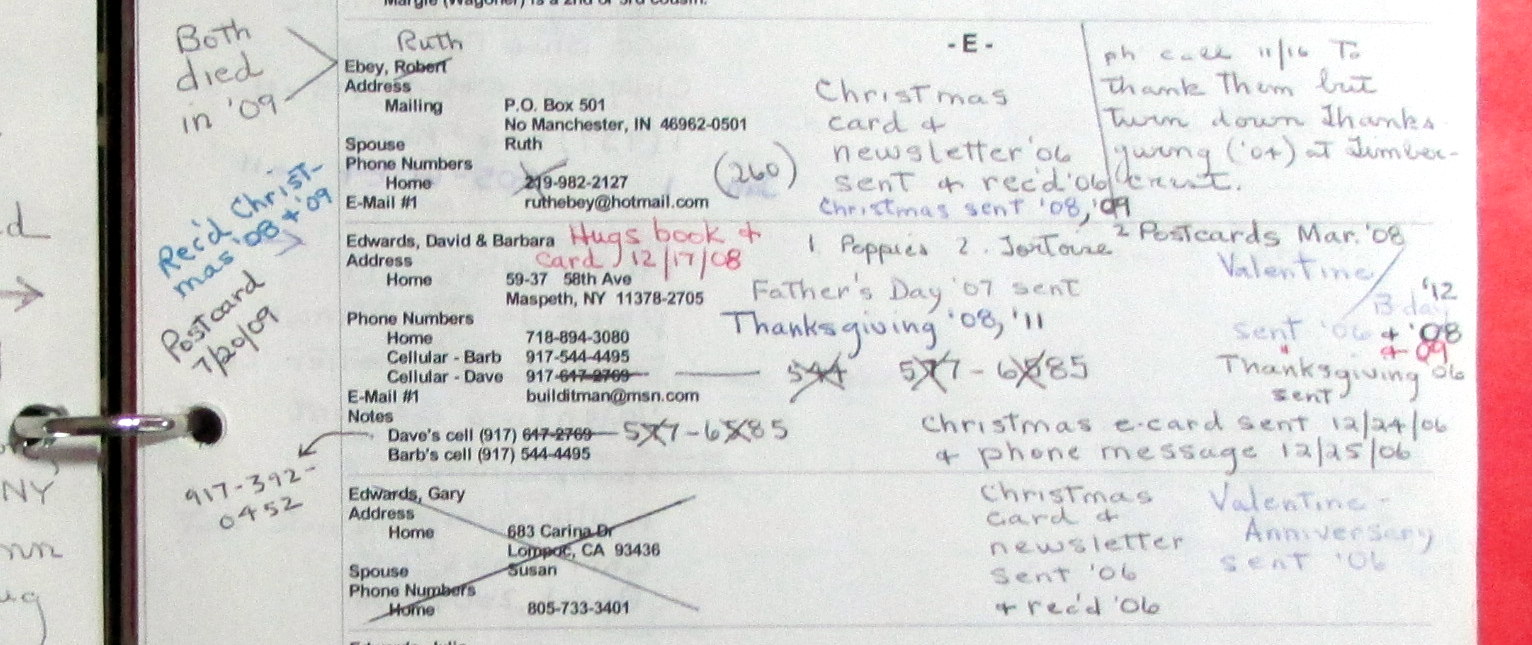 Margie (Wagoner) is a 2nd or 3rd cousin.
- E -
Both
died
in '09
Ruth
Ebey, Robert
Address
Mailing P.O. Box 501
No Manchester, IN 46962-0501
Spouse Ruth
Phone Numbers
Home 219-982-2127 (260)
E-Mail #1 ruthebey@hotmail.com
Christmas
card +
newsletter '06
sent + rec'd '06
Christmas sent '08, '09
ph call 11/16 To
thank Them but
turn down Thanks-
giving ('04) at Timber-
crest.
Rec'd Christ-
mas '08 + '09
Postcard
7/20/09
Edwards, David & Barbara
Hugs book +
card 12/17/08
Address
Home 59-37 58th Ave
Maspeth, NY 11378-2705
Phone Numbers
Home 718-894-3080
Cellular - Barb 917-544-4495
Cellular - Dave 917-617-2769 544 577-6585
E-Mail #1 builditman@msn.com
Notes
Dave's cell (917) 617-2769 577-6585
Barb's cell (917) 544-4495
917-392-
0452
1. Poppies 2. Tortoise
2 Postcards Mar. '08
Father's Day '07 sent
Thanksgiving '08, '11
Valentine
B day '12
sent '06 + '08
+ 09
Thanksgiving '06
sent
Christmas e-card sent 12/24/06
+ phone message 12/25/06
Edwards, Gary
Address
Home 683 Carina Dr
Lompoc, CA 93436
Spouse Susan
Phone Numbers
Home 805-733-3401
Christmas
card +
newsletter
sent '06
+ rec'd '06
Valentine -
Anniversary
sent '06
NY